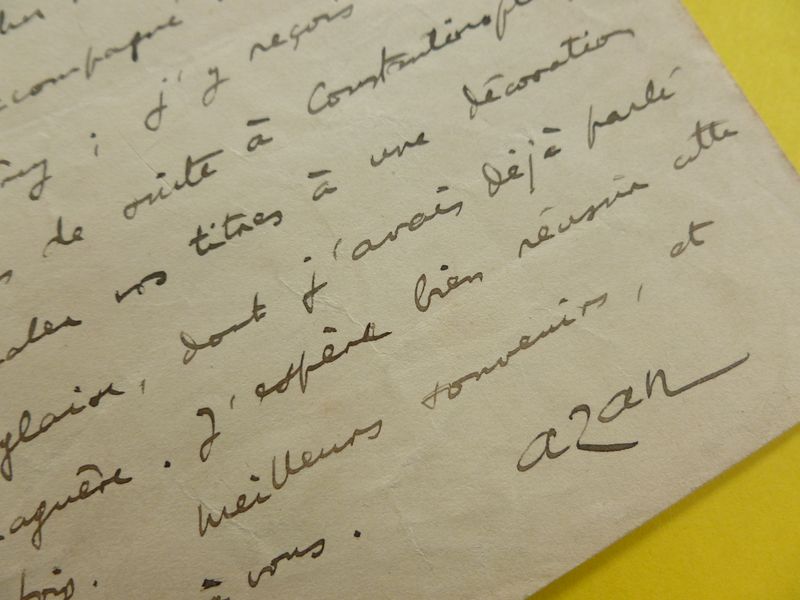 compagné
; j'y reçois
de suite à Constantinople
vos titres à une décoration
glaise, dont j'avais déjà parlé
naguère. J'espère bien réussir cette
fois. Meilleurs souvenirs, et
à vous.
Azan